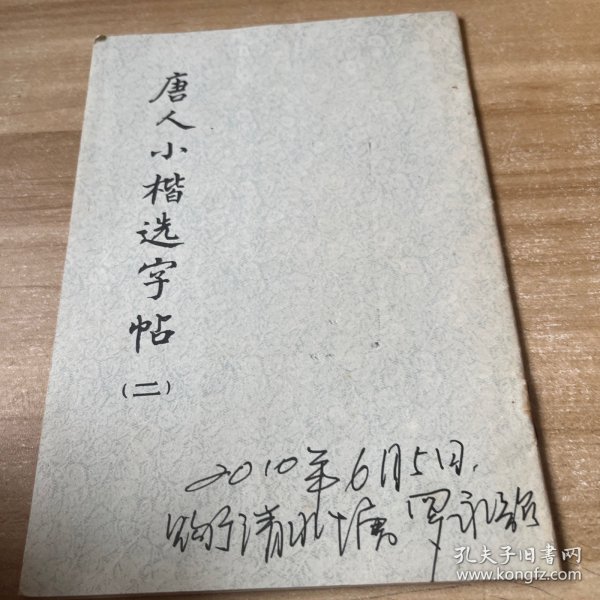 唐人小楷选字帖
(二)
2010年6月5日.
购于清水塘 罗永韶
孔夫子旧书网
www.kongfz.com